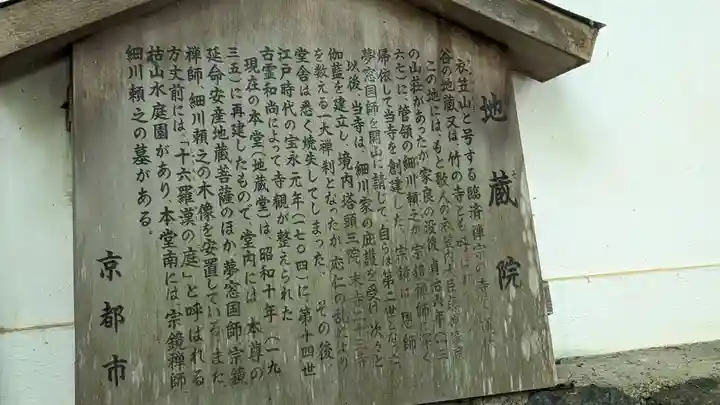 地蔵院
衣笠山と号する臨済禅宗の寺
谷の地蔵又は、竹の寺とも呼
この地には、もと歌人の衣笠内大臣
の山荘があったが、家良の没後、貞治六年(一三
六七)に、管領の細川頼之が、宗鏡禅師に深く
帰依して当寺を創建した。宗鏡は、恩師
夢窓国師を開山に請じて、自らは第二世となった
以後、当寺は、細川家の庇護を受け、次々と
伽藍を建立し、境内塔頭三院、末寺二十三寺
を数える一大禅刹となったが、応仁の乱により
堂舎は悉く焼失してしまった。その後、
江戸時代の宝永元年(一七〇四)に、第十四世
古霊和尚によって寺観が整えられた
現在の本堂(地蔵堂)は、昭和十年(一九
三五)に再建したもので、堂内には、本尊の
延命安産地蔵菩薩のほか夢窓国師、宗鏡
禅師、細川頼之の木像を安置している。また、
方丈前には、「十六羅漢の庭」と呼ばれる
枯山水庭園があり、本堂南には、宗鏡禅師、
細川頼之の墓がある。
京都市